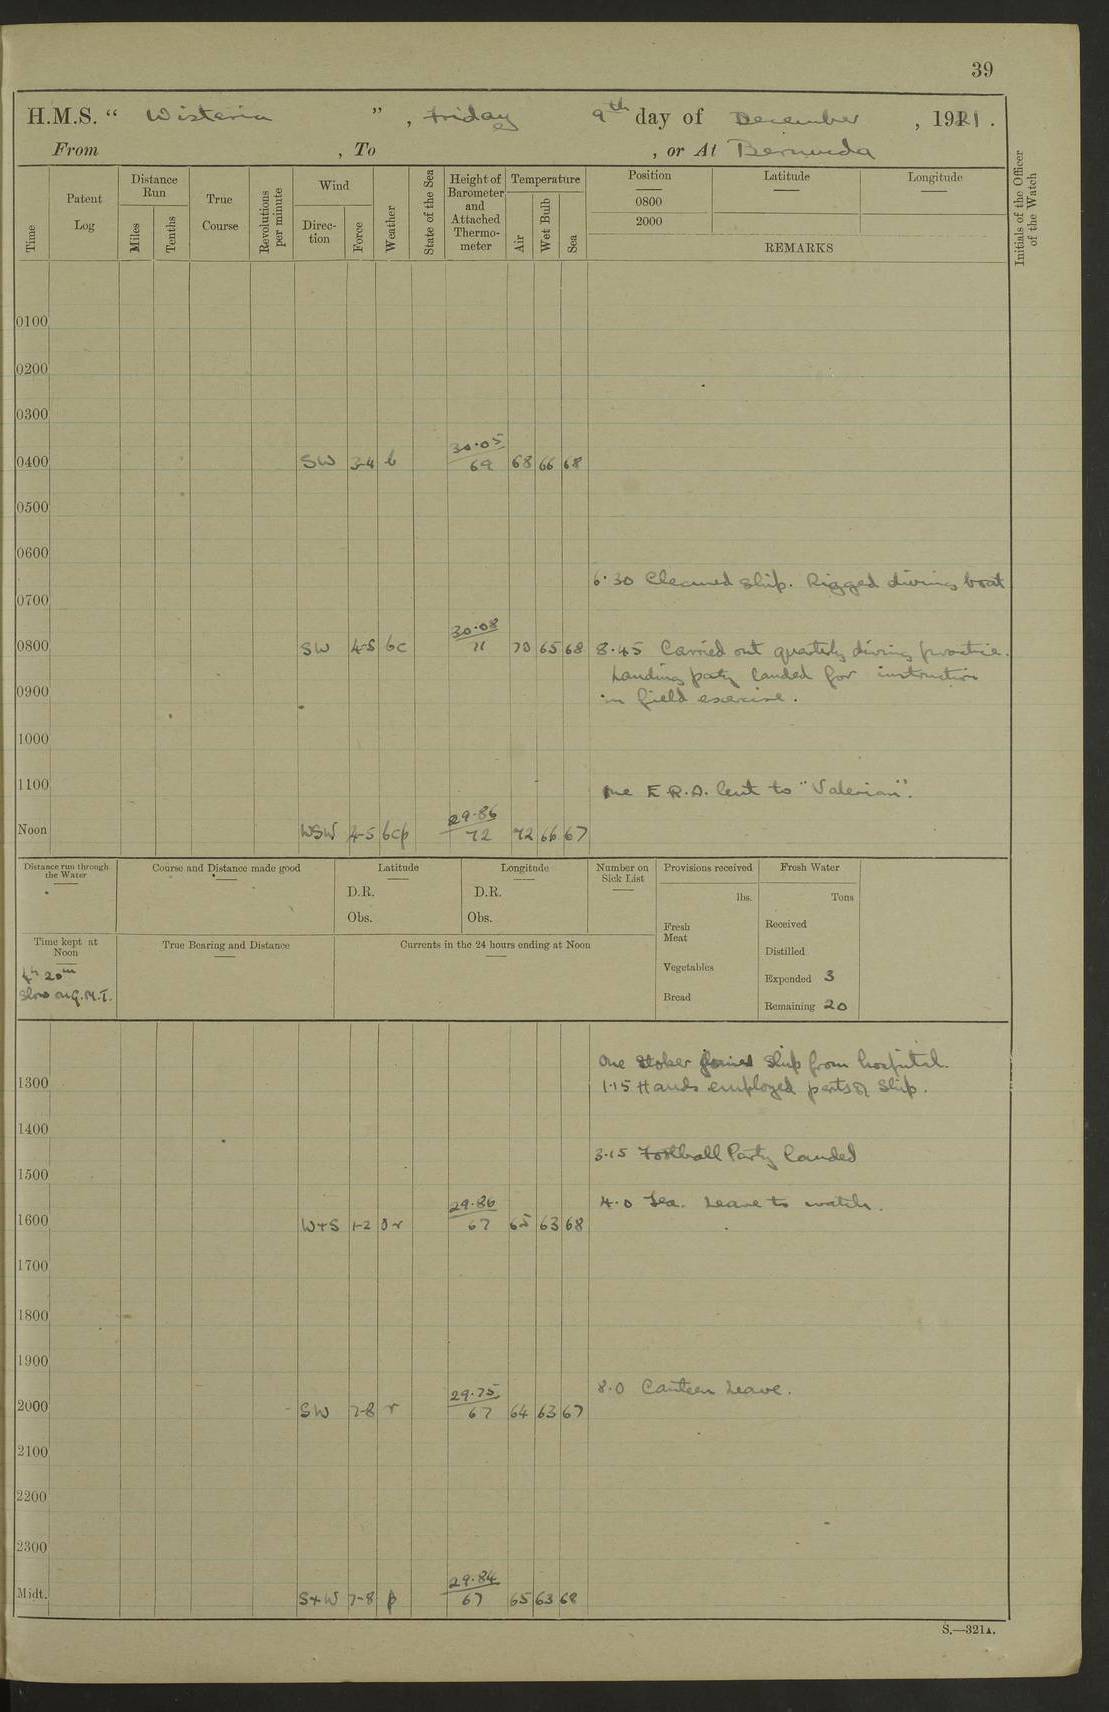 39
H.M.S. " Wisteria ", Friday 9th day of December, 1921.
From , To , or At Bermuda
Time
Patent Log
Distance Run
Miles
Tenths
True Course
Revolutions per minute
Wind
Direc-tion
Force
Weather
State of the Sea
Height of Barometer and Attached Thermo-meter
Temperature
Air
Wet Bulb
Sea
Position
0800
2000
Latitude
Longitude
REMARKS
Initials of the Officer of the Watch
0100
0200
0300
30.05
0400 SW 3-4 b 69 68 66 68
0500
0600
6.30 Cleaned Ship. Rigged diving boat
0700
30.08
0800 SW 4-5 bc 71 70 65 68 8.45 Carried out quarterly diving practice.
Landing party landed for instruction
0900 in field exercise.
1000
1100 One E.R.A. lent to "Valerian".
29.86
Noon WSW 4-5 bcp 72 72 66 67
Distance run through the Water
Course and Distance made good
Latitude
D.R.
Obs.
Longitude
D.R.
Obs.
Number on Sick List
Provisions received
lbs.
Fresh Meat
Vegetables
Bread
Fresh Water
Tons
Received
Distilled
Expended 3
Remaining 20
Time kept at Noon
4h 20m
Slow on G.M.T.
True Bearing and Distance
Currents in the 24 hours ending at Noon
One Stoker joined Ship from hospital.
1300 1.15 Hands employed parts of Ship.
1400
3.15 Football Party landed
1500
29.86 4.0 Tea. Leave to watch.
1600 W+S 1-2 or 67 65 63 68
1700
1800
1900
29.75 8.0 Canteen Leave.
2000 SW 7-8 r 67 64 63 67
2100
2200
2300
29.84
Midt. S+W 7-8 p 67 65 63 68
S.—321A.